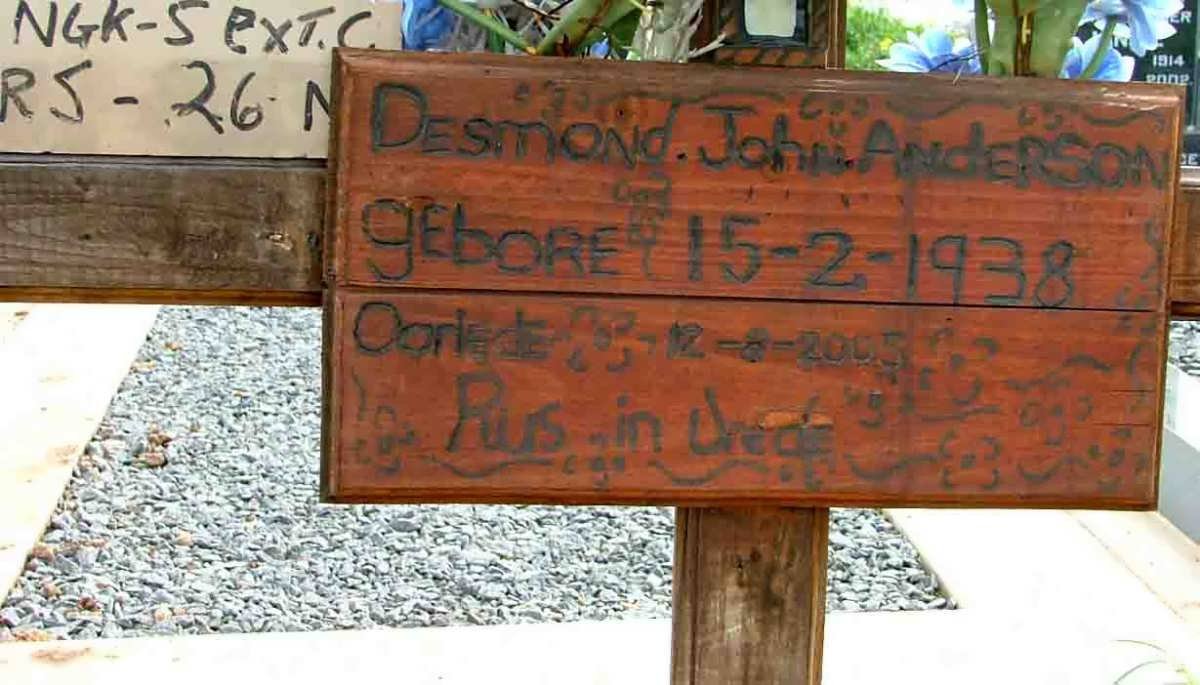 NGK-S exT.C
RS - 26 N
DESMOND. JohN. ANdERSON
gEboRE 15-2-1938
Oorlede - 12-8-2005
Rus in Vrede
1914
2002